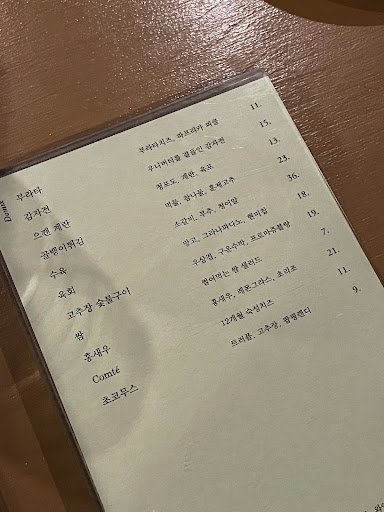 Domix
부라타 부라타치즈, 파프리카 피클 11.
감자전 우니버터를 곁들인 감자전 15.
으깬 계란 청포도, 계란, 육포 13.
골뱅이튀김 참나물, 훈제고추 23.
수육 소갈비, 부추, 청어알 36.
육회 망고, 그라나파다노, 현미칩 18.
고추장 숯불구이 우삼겹, 구운수박, 프로마쥬블랑 19.
쌈 썰어먹는 쌈 샐러드 7.
홍새우 홍새우, 레몬그라스, 초리조 21.
Comté 12개월 숙성치즈 11.
초코무스 트러플, 고추장, 팝핑캔디 9.